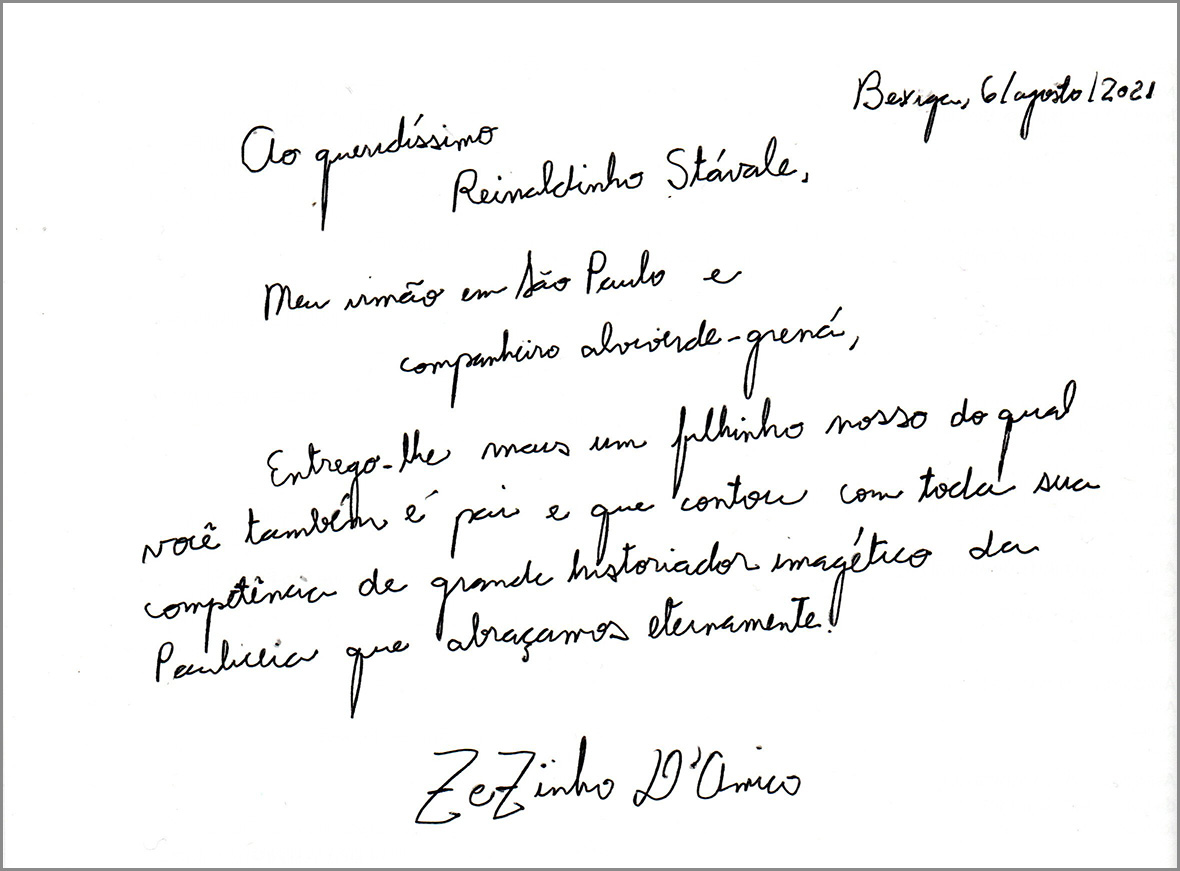 Bexiga, 6/agosto/2021
Ao queridíssimo
Reinaldinho Stávale,
Meu irmão em São Paulo e
companheiro alviverde-grená,
Entrego-lhe mais um filhinho nosso do qual
você também é pai e que contou com toda sua
competência de grande historiador imagético da
Pauliceia que abraçamos eternamente!
ZeZinho D'Amico